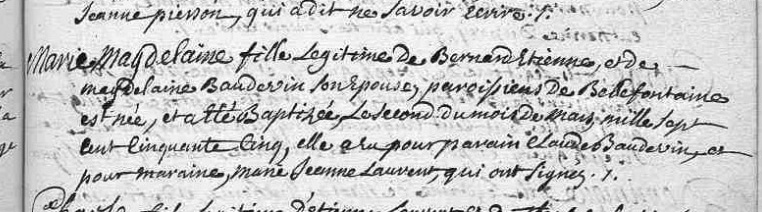 Jeanne pierson, qui a dit ne savoir Ecrire ./.
Marie Magdelaine fille Legitime De Bernard Etienne, et de
magdelaine Baudevin son Epouse, paroissiens de Bellefontaine
est née, et a Eté Baptisée, Le second du mois de Mars, mille sept
cent Cinquante Cinq, elle a eu pour parain Claude Baudevin, et
pour maraine, marie Jeanne Laurent qui ont signez ./.
fille Legitime d'Etienne Laurent et de